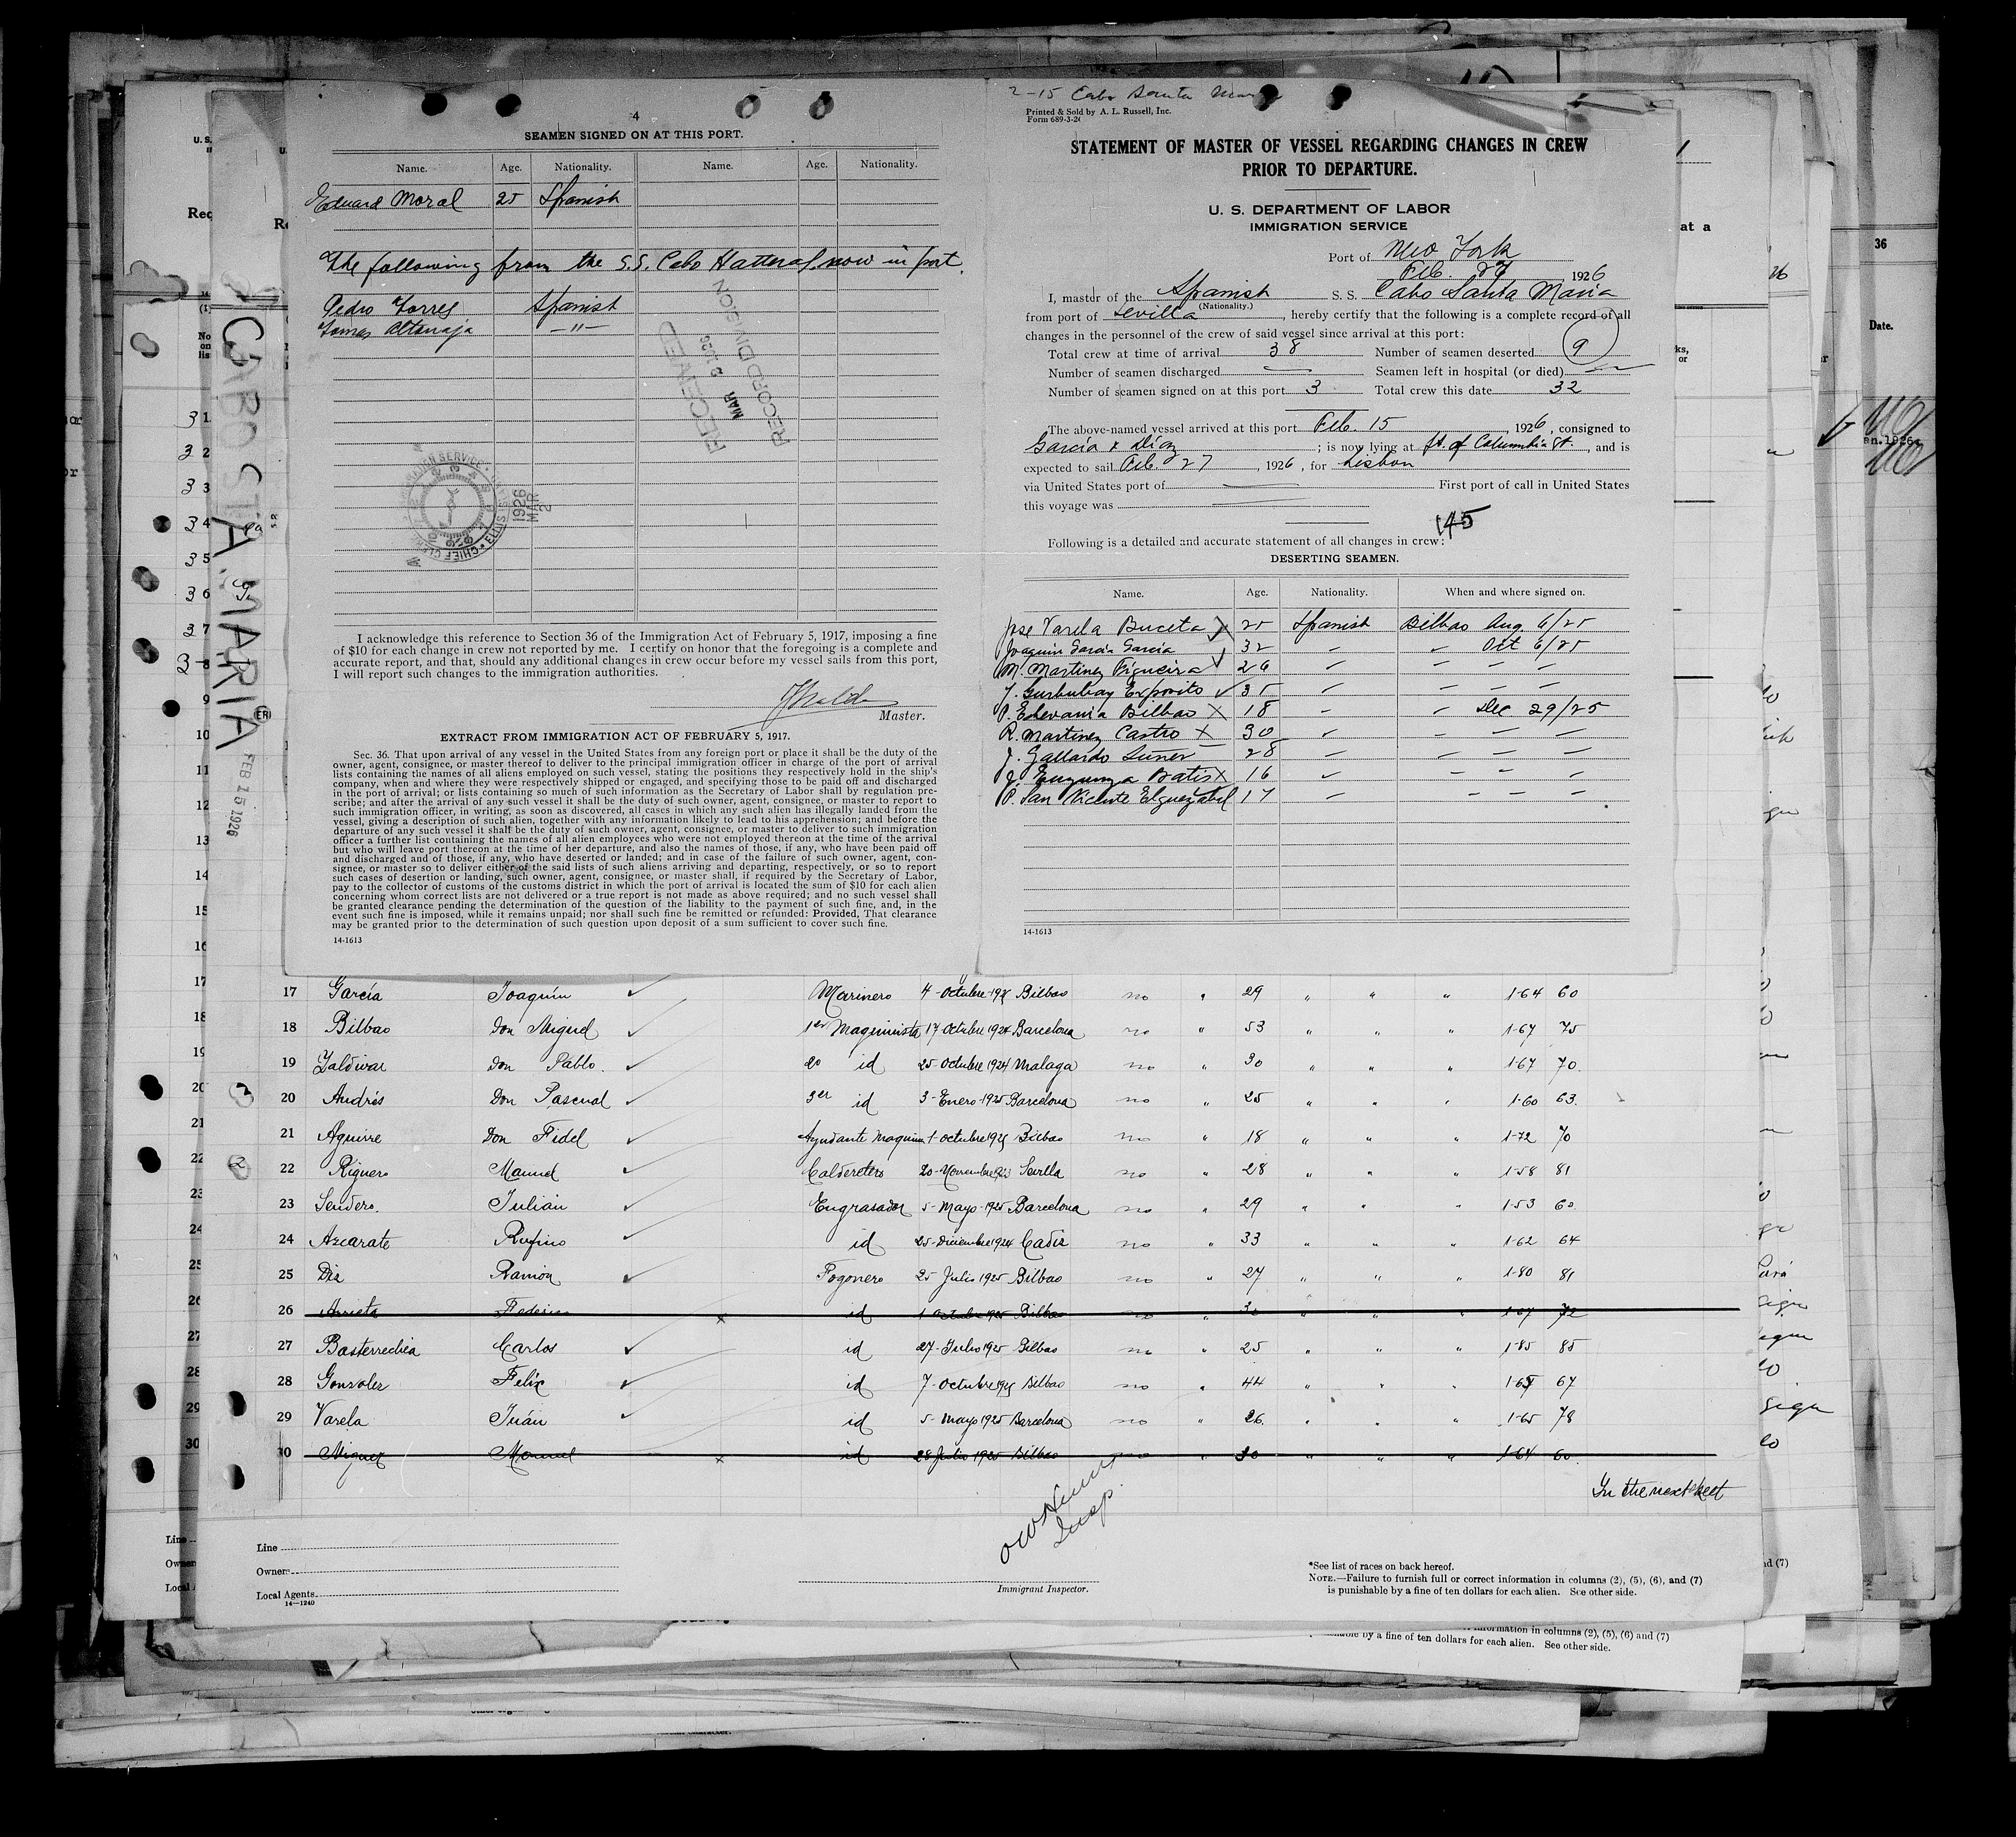 4
SEAMEN SIGNED ON AT THIS PORT.
Name. Age. Nationality. Name. Age. Nationality.
Eduard Moral 25 Spanish
The following from the S.S. Cabo Hatteras now in port.
Pedro Torres Spanish
Tomas Altanaja —"—
RECEIVED
MAR 3 1926
RECORD DIVISION
1926
MAR
2
I acknowledge this reference to Section 36 of the Immigration Act of February 5, 1917, imposing a fine
of $10 for each change in crew not reported by me. I certify on honor that the foregoing is a complete and
accurate report, and that, should any additional changes in crew occur before my vessel sails from this port,
I will report such changes to the immigration authorities.
Master.
EXTRACT FROM IMMIGRATION ACT OF FEBRUARY 5, 1917.
Sec. 36. That upon arrival of any vessel in the United States from any foreign port or place it shall be the duty of the
owner, agent, consignee, or master thereof to deliver to the principal immigration officer in charge of the port of arrival
lists containing the names of all aliens employed on such vessel, stating the positions they respectively hold in the ship's
company, when and where they were respectively shipped or engaged, and specifying those to be paid off and discharged
in the port of arrival; or lists containing so much of such information as the Secretary of Labor shall by regulation pre-
scribe; and after the arrival of any such vessel it shall be the duty of such owner, agent, consignee, or master to report to
such immigration officer, in writing, as soon as discovered, all cases in which any such alien has illegally landed from the
vessel, giving a description of such alien, together with any information likely to lead to his apprehension; and before the
departure of any such vessel it shall be the duty of such owner, agent, consignee, or master to deliver to such immigration
officer a further list containing the names of all alien employees who were not employed thereon at the time of the arrival
but who will leave port thereon at the time of her departure, and also the names of those, if any, who have been paid off
and discharged and of those, if any, who have deserted or landed; and in case of the failure of such owner, agent, con-
signee, or master so to deliver either of the said lists of such aliens arriving and departing, respectively, or so to report
such cases of desertion or landing, such owner, agent, consignee, or master shall, if required by the Secretary of Labor,
pay to the collector of customs of the customs district in which the port of arrival is located the sum of $10 for each alien
concerning whom correct lists are not delivered or a true report is not made as above required; and no such vessel shall
be granted clearance pending the determination of the question of the liability to the payment of such fine, and, in the
event such fine is imposed, while it remains unpaid; nor shall such fine be remitted or refunded: Provided, That clearance
may be granted prior to the determination of such question upon deposit of a sum sufficient to cover such fine.
14-1613
2-15 Cabo Santa Maria
Printed & Sold by A. L. Russell, Inc.
Form 689-3-2
STATEMENT OF MASTER OF VESSEL REGARDING CHANGES IN CREW
PRIOR TO DEPARTURE.
U. S. DEPARTMENT OF LABOR
IMMIGRATION SERVICE
Port of New York
Feb. 27, 1926
I, master of the Spanish S. S. Cabo Santa Maria
(Nationality.)
from port of Sevilla, hereby certify that the following is a complete record of all
changes in the personnel of the crew of said vessel since arrival at this port:
Total crew at time of arrival 38 Number of seamen deserted 9
Number of seamen discharged — Seamen left in hospital (or died) —
Number of seamen signed on at this port 3 Total crew this date 32
The above-named vessel arrived at this port Feb. 15, 1926, consigned to
Garcia & Diaz; is now lying at ft. of Columbia St., and is
expected to sail Feb. 27, 1926, for Lisbon
via United States port of — First port of call in United States
this voyage was —
145
Following is a detailed and accurate statement of all changes in crew:
DESERTING SEAMEN.
Name. Age. Nationality. When and where signed on.
Jose Varela Buceta 25 Spanish Bilbao Aug. 6/25
Joaquin Garcia Garcia 32 " " Oct 6/25
M. Martinez Figueira 26 " — — —
J. Gurbubay Exposito 35 " — — —
P. Echevarria Bilbao X 18 " " Dec 29/25
R. Martinez Castro X 30 " — — —
J. Gallardo Suner 28 " — — —
J. Batis X 16 " — — —
P. San Vicente Elguezabal 17 — — — —
CABO STA. MARIA
FEB 15 1926
17 García Joaquín Marinero 4-Octubre-192 Bilbao no " 29 " " " 1-64 60
18 Bilbao Don Miguel 1er Maquinista 17 Octubre 1924 Barcelona no " 53 " " " 1-67 75
19 Zaldivar Don Pablo. 2o id 25-Octubre 1924 Malaga no " 30 " " " 1-67 70.
20 Andrés Don Pascual 3er id 3-Enero-1925 Barcelona no " 25 " " " 1-60 63.
21 Aguirre Don Fidel Ayudante Maquina 1-octubre 1925 Bilbao no " 18 " " " 1-72 70
22 Riguero Manuel Calderetero 20-Noviembre Sevilla no " 28 " " " 1-58 81
23 Sendero. Julián Engrasador 5-Mayo-1925 Barcelona no " 29 " " " 1-53 60
24 Azcarate Rufino id 25-Diciembre 1924 Cadiz no " 33 " " " 1-62 64
25 Diz Ramón Fogonero 25 Julio 1925 Bilbao no " 27 " " " 1-80 81
26 Arrieta Federico x id 1 Octubre 1925 Bilbao no " 3 " " " 1-67 72
27 Basterrechea Carlos id 27-Julio 1925 Bilbao no " 25 " " " 1-85 85
28 Gonzalez Felix id 7-Octubre 1925 Bilbao no " 44 " " " 1-65 67
29 Varela Juán id 5-Mayo 1925 Barcelona no " 26. " " " 1-65 78
30 Miguez Manuel x id 28 Julio 1925 Bilbao no " 30 " " " 1-64 60.
In the next sheet
Insp.
Line
Owners
Local Agents
14—1240
Immigrant Inspector.
*See list of races on back hereof.
NOTE.—Failure to furnish full or correct information in columns (2), (5), (6), and (7)
is punishable by a fine of ten dollars for each alien. See other side.
information in columns (2), (5), (6) and (7)
by a fine of ten dollars for each alien. See other side.